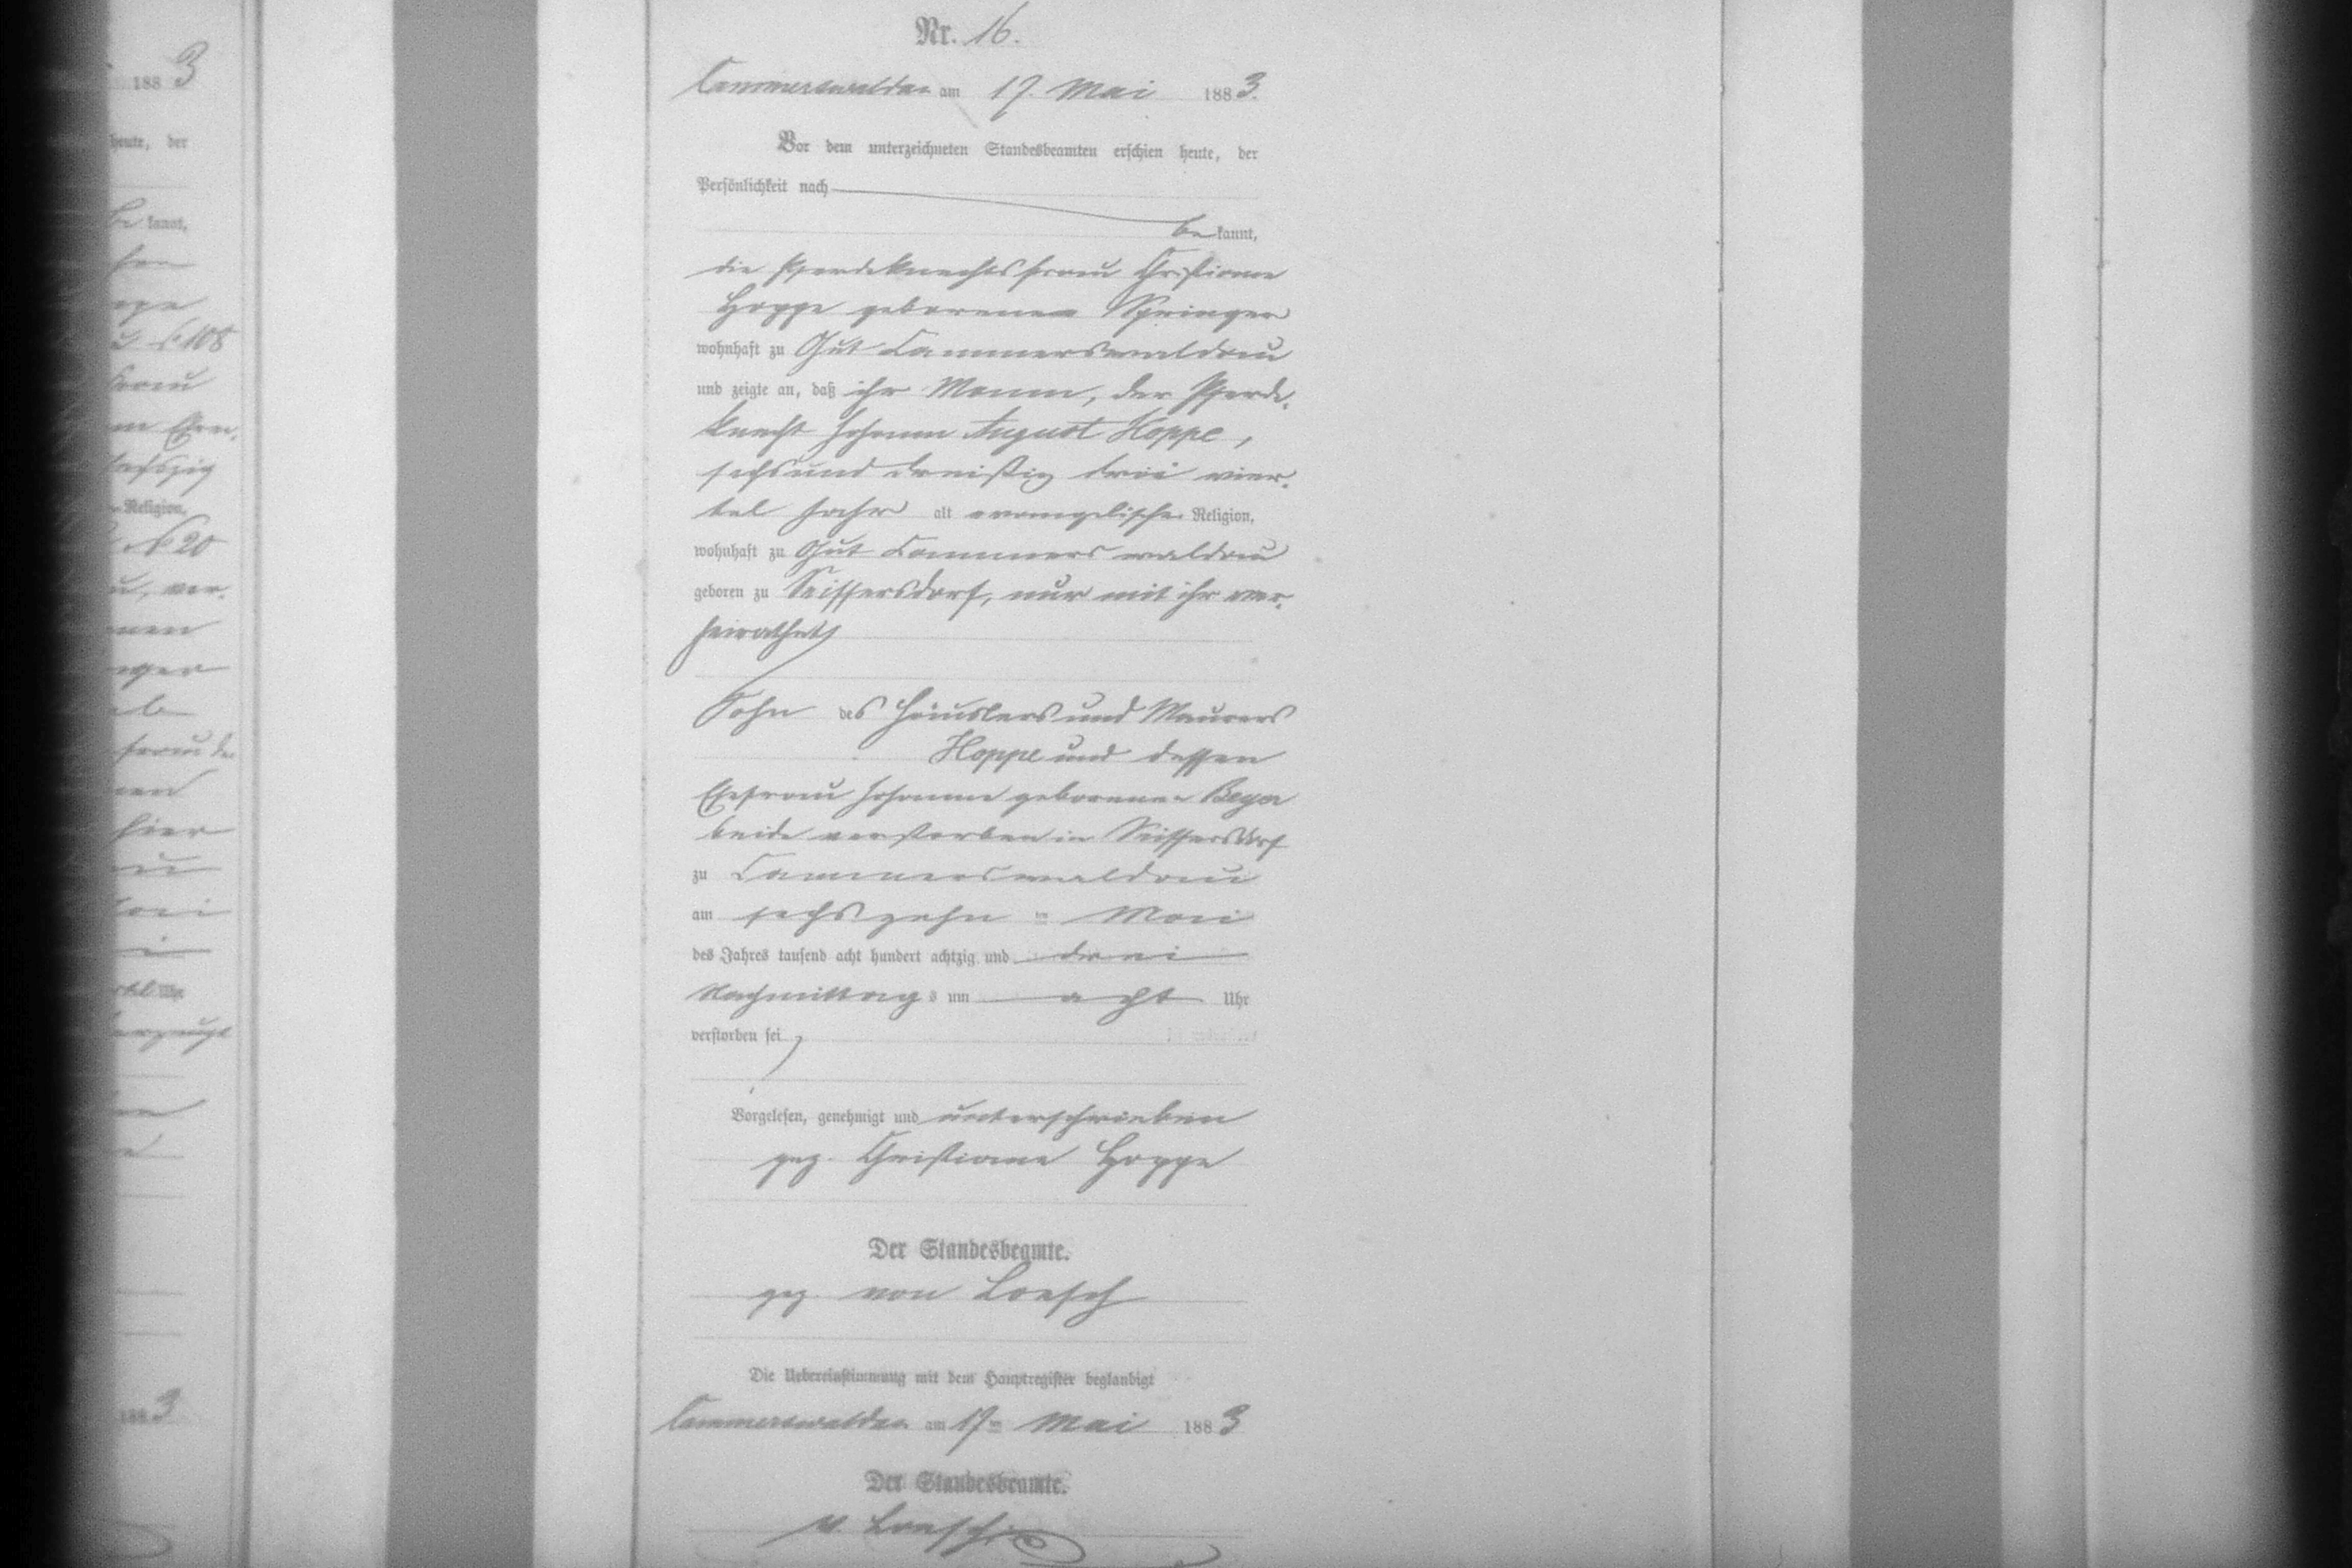 Nr. 16.
Cammerswaldau am 17. Mai 1883.
Vor dem unterzeichneten Standesbeamten erschien heute, der
Persönlichkeit nach
be kannt,
die Pferdeknechtsfrau Christiane
Hoppe geborenen Springer
wohnhaft zu Gut Cammerswaldau
und zeigte an, daß ihr Mann, der Pferde-
knecht Johann August Hoppe,
sechsund dreißig drei vier-
tel Jahr alt evangelischer Religion,
wohnhaft zu Gut Cammerswaldau
geboren zu Seiffersdorf, nur mit ihr ver-
heirathet,
Sohn des Häuslers und Maurers
Hoppe und dessen
Ehefrau Johanne geborenen Beyer
beide verstorben in Seiffersdorf
zu Cammerswaldau
am sechszehn ten Mai
des Jahres tausend acht hundert achtzig und drei
Nachmittags um acht Uhr
verstorben sei,
Vorgelesen, genehmigt und unterschrieben
gez. Christiane Hoppe
Der Standesbeamte.
gez. von Loesch
Die Uebereinstimmung mit dem Hauptregister beglaubigt
Cammerswaldau am 17ten Mai 1883
Der Standesbeamte.
v. Loesch
1883
heute, der
be kannt,
108
Religion,
20
hier
Uhr
1883